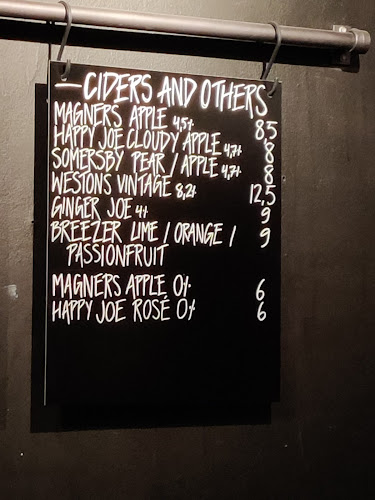 — CIDERS AND OTHERS
MAGNERS APPLE 4,5% 8,5
HAPPY JOE CLOUDY APPLE 4,7% 8
SOMERSBY PEAR / APPLE 4,7% 8
WESTONS VINTAGE 8,2% 12,5
GINGER JOE 4% 9
BREEZER LIME / ORANGE / 9
PASSIONFRUIT
MAGNERS APPLE 0% 6
HAPPY JOE ROSÉ 0% 6